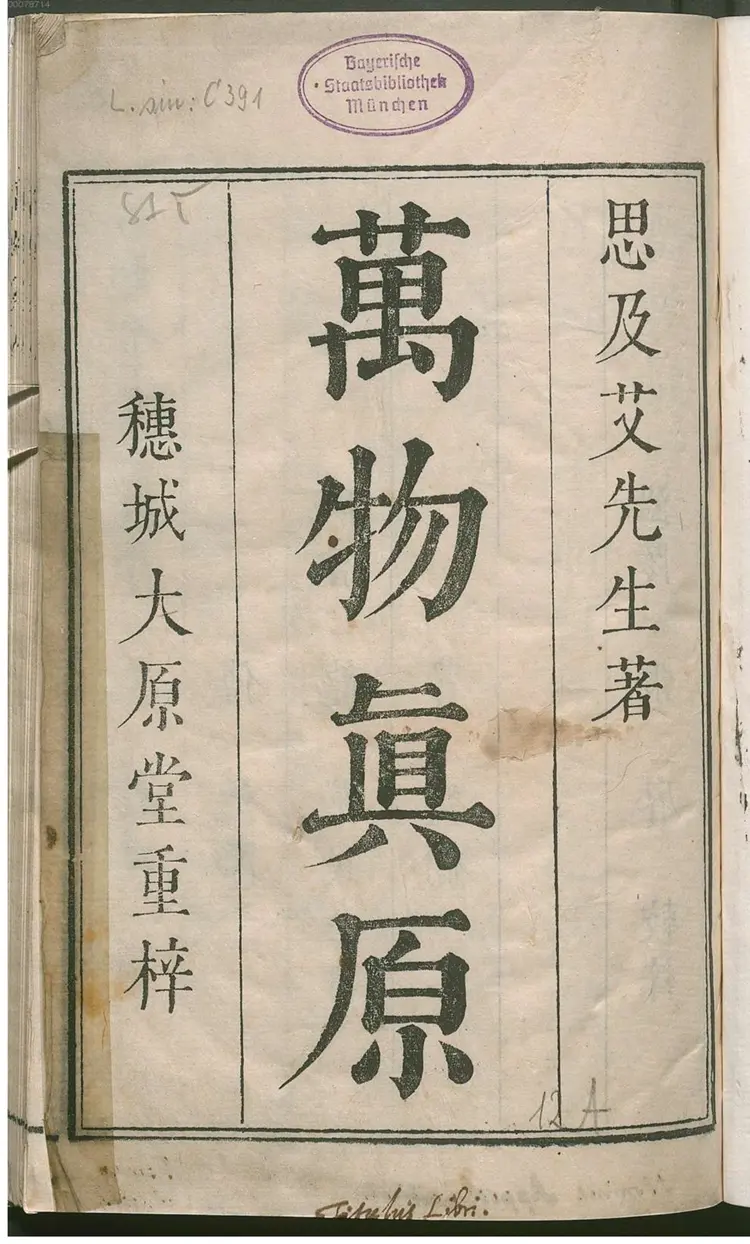 00078714
Bayerische
Staatsbibliothek
München
L. sin: C 391
思及艾先生著
萬物眞原
穗城大原堂重梓
12 A
Titulus Libri.